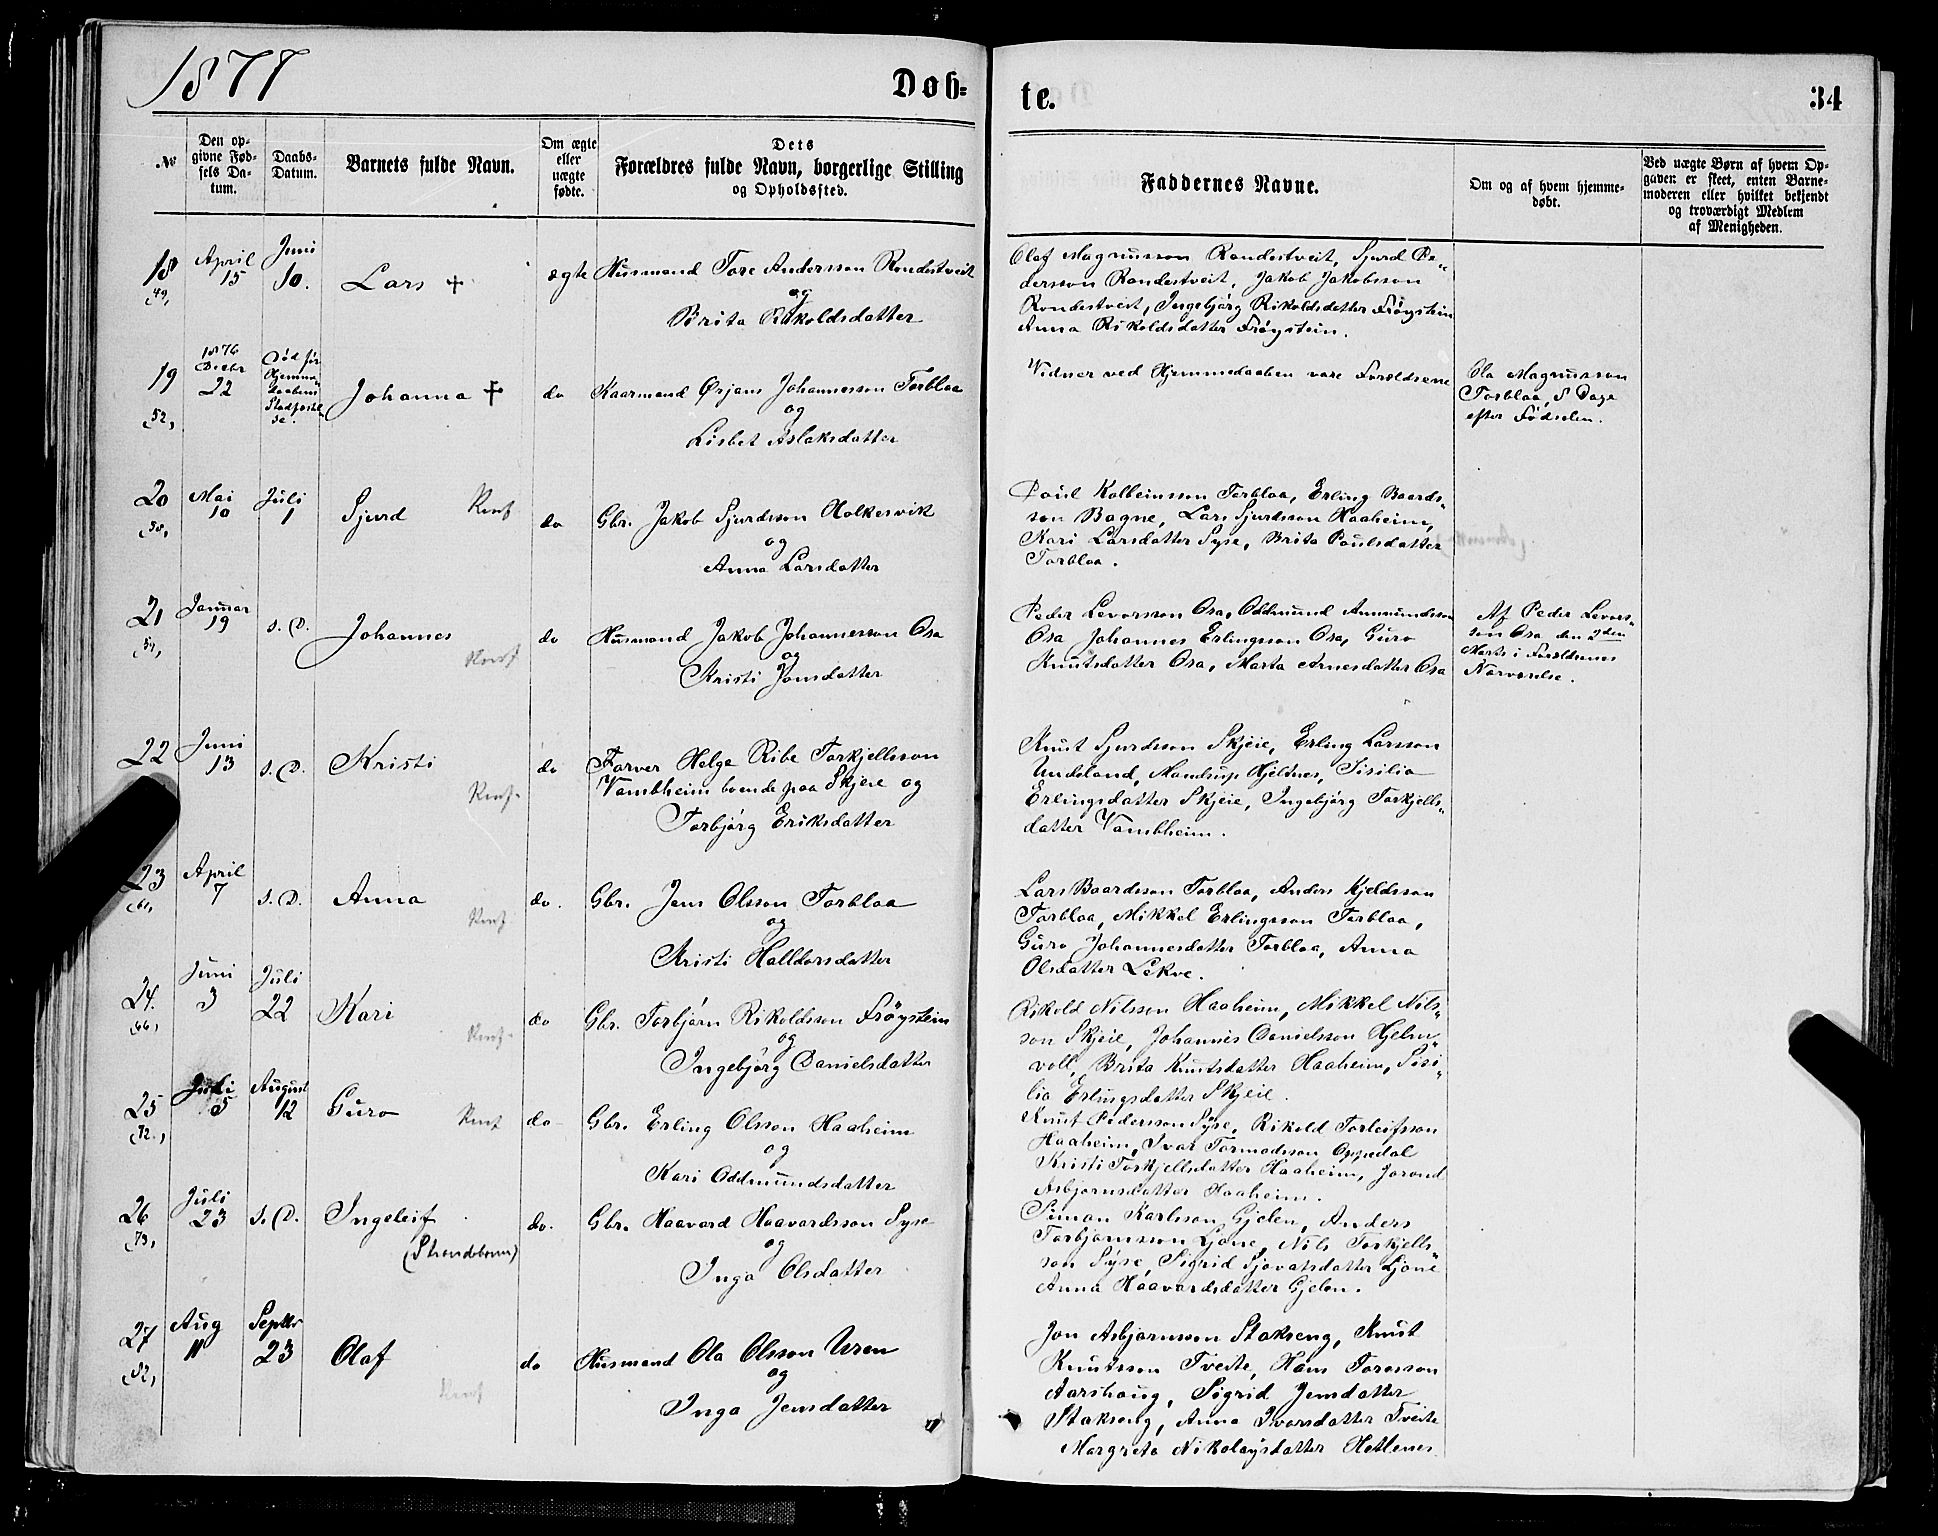 1877
Døb=
te.
34
№
Den op-
givne Fød-
sels Da-
tum.
Daabs-
Datum.
Barnets fulde Navn.
Om ægte
eller
uægte
fødte.
Dets
Forældres fulde Navn, borgerlige Stilling
og Opholdssted.
Faddernes Navne.
Om og af hvem hjemme-
døbt.
Ved uægte Børn af hvem Op-
gaven er skeet, enten Barne-
moderen eller hvilket bekjendt
og troværdigt Medlem
af Menigheden.
18
(49,
April
15
Juni
10.
Lars +
ægte
Husmand Tore Andersson Rondestveit
og
Brita Rikoldsdatter
Olaf Magnusson Rondestveit, Sjurd Pe-
dersson Rondestveit, Jakob Jakobsson
Rondestveit, Ingebjørg Rikoldsdatter Frøystein
Anna Rikoldsdatter Frøystein.
19
(52,
1876
Decbr
22
Død før
Hjemme-
daabens
Stadfæstel-
se.
Johanna +
do
Kaarmand Ørjans Johannesson Torbloa
og
Lisbet Aslaksdatter
Vidner ved Hjemmedaaben vare Forældrene
Ola Magnusson
Torbloa, 8 Dage
efter Fødselen.
20
(58,
Mai
10
Juli
1
Sjurd
Konf
do
Gbr. Jakob Sjurdsson Holkesvik
og
Anna Larsdatter
Poul Kolbeinsson Torbloa, Erling Baards-
son Bagne, Lars Sjurdsson Haaheim,
Kari Larsdatter Syse, Brita Poulsdatter
Torbloa.
21
(59,
Januar
19
s. D.
Johannes
Konf
do
Husmand Jakob Johannesson Osa
og
Kristi Jonsdatter
Peder Levorsson Osa, Oddmund Ammundsson
Osa Johannes Erlingsson Osa, Guro
Knutsdatter Osa, Marta Arnesdatter Osa
Af Peder Levors-
son Osa den 2den
Marts i Forældrenes
Nærværelse.
22
Juni
13
s. D.
Kristi
Konf.
do
Farver Helge Ribe Torkjellsson
Vambheim boende paa Skjeie og
Torbjørg Eriksdatter
Knut Sjurdsson Skjeie, Erling Larsson
Undeland, Mandrup Hjeldnes, Sisilia
Erlingsdatter Skjeie, Ingebjørg Torkjells-
datter Vambheim.
23
(61,
April
7
s. D.
Anna
Konf
do.
Gbr. Jens Olsson Torbloa
og
Kristi Halldorsdatter
Lars Baardsson Torbloa, Anders Kjeldsson
Torbloa, Mikkel Erlingsson Torbloa,
Guro Johannesdatter Torbloa, Anna
Olsdatter Lekve.
24.
(66,
Juni
3
Juli
22
Kari
Konf.
do
Gbr. Torbjørn Rikoldsson Frøystein
og
Ingebjørg Danielsdatter
Rikold Nilsson Haaheim, Mikkel Nils-
son Skjeie, Johannes Danielsson Hjelm-
voll, Brita Knutsdatter Haaheim, Sisi-
lia Erlingsdatter Skjeie.
25
(72.,
Juli
5
August
12
Guro
Konf
do
Gbr. Erling Olsson Haaheim
og
Kari Oddmundsdatter
Knut Pedersson Syse, Rikold Torleifsson
Haaheim, Ivar Tormodsson Oppedal
Kristi Torkjellsdatter Haaheim, Jorond
Asbjørnsdatter Haaheim.
26
(73,
Juli
23
s. D.
Ingeleif
(Strandebarm)
do.
Gbr. Haavard Haavardsson Syse
og
Inga Olsdatter
Simon Karlsson Gjelen, Anders
Torbjørnsson Ljone, Nils Torkjells-
son Syse, Sigrid Sjovatsdatter Ljone
Anna Haavardsdatter Gjelen.
27
(82,
Aug
11
Septbr
23
Olaf
Konf
do
Husmand Ola Olsson Uren
og
Inga Jensdatter
Jon Asbjørnsson Stakseng, Knut
Knutsson Tveite, Hans Toresson
Aarshaug, Sigrid Jensdatter
Stakseng, Anna Ivarsdatter Tveite
Margreta Nikolaysdatter Hetlenes